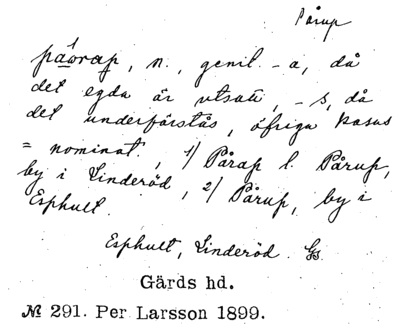 Pårup
páorap, n., genit. -a, då
det egda är utsatt, -s, då
det underförstås, öfriga kasus
= nominat., 1/ Pårap l. Pårup,
by i Linderöd, 2/ Pårup, by i
Esphult.
Esphult, Linderöd. Gs
Gärds hd.
№ 291. Per Larsson 1899.